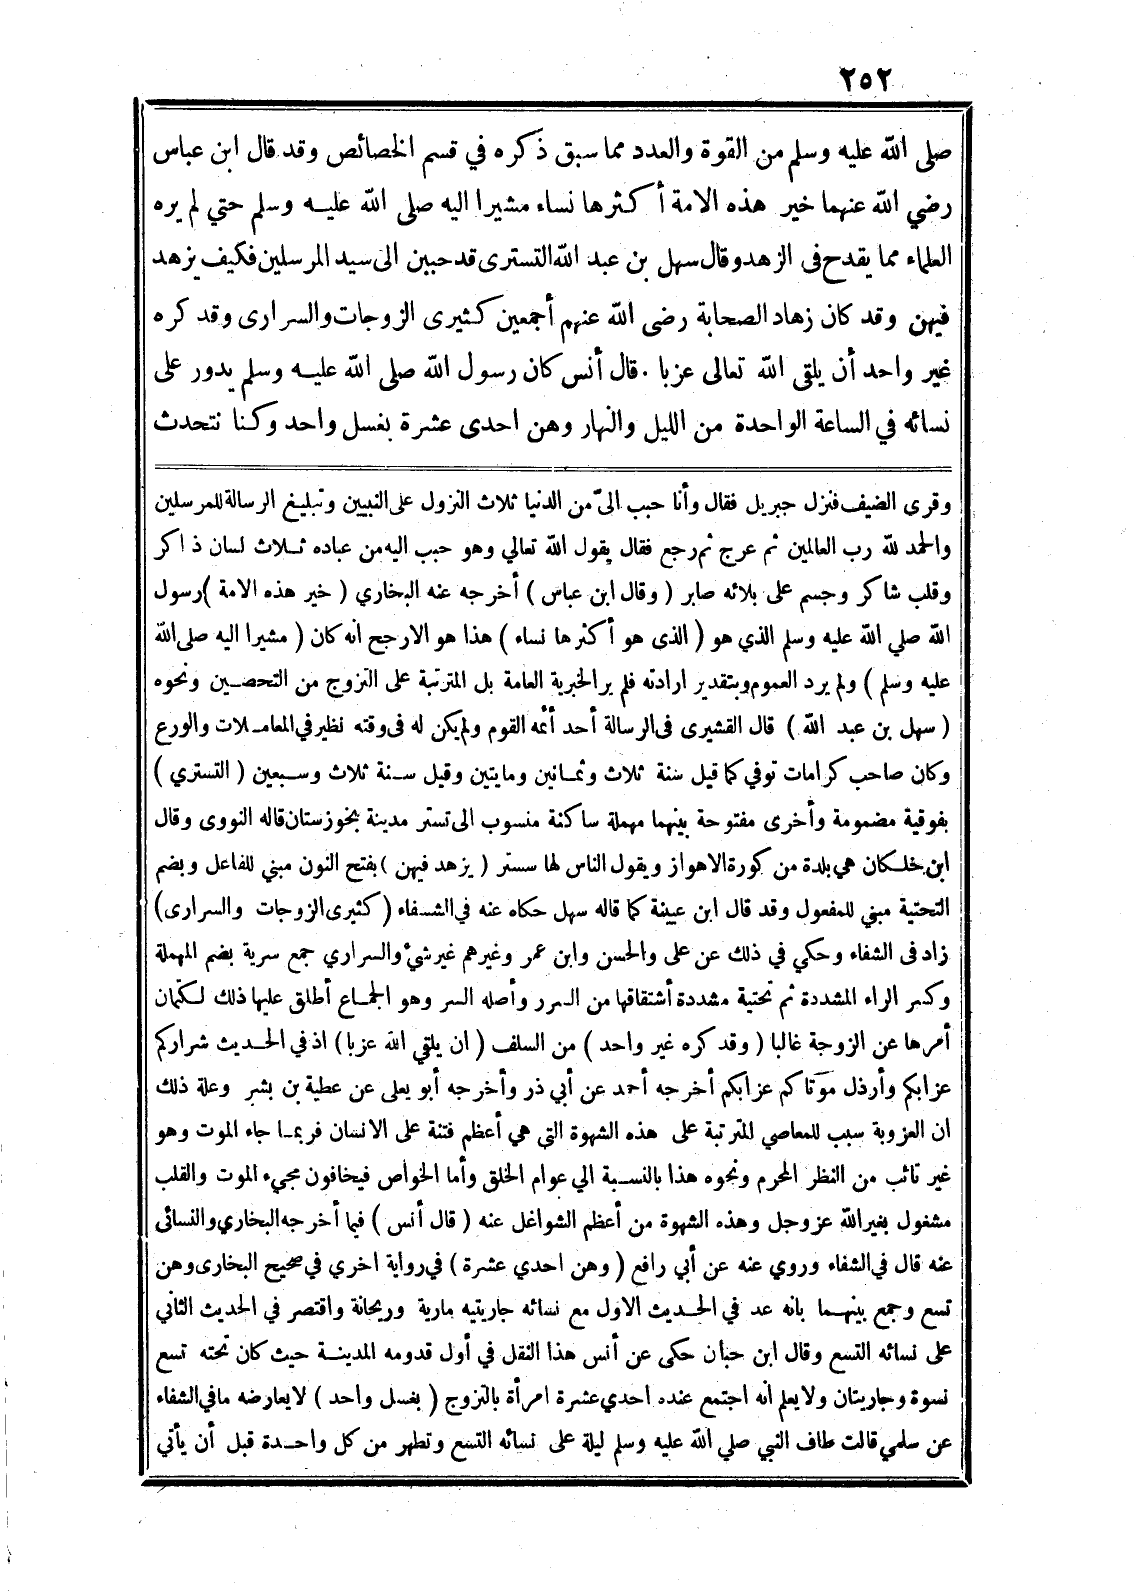 ٢٥٢
صلى الله عليه وسلم من القوة والعدد مما سبق ذكره في قسم الخصائص وقد قال ابن عباس
رضي الله عنهما خير هذه الامة أكثرها نساء مشيرا اليه صلى الله عليه وسلم حتي لم يره
العلماء مما يقدح فى الزهد وقال سهل بن عبد الله التسترى قد حببن الى سيد المرسلين فكيف يزهد
فيهن وقد كان زهاد الصحابة رضى الله عنهم أجمعين كثيرى الزوجات والسرارى وقد كره
غير واحد أن يلقى الله تعالى عزبا. قال أنس كان رسول الله صلى الله عليه وسلم يدور على
نسائه في الساعة الواحدة من الليل والنهار وهن احدى عشرة بغسل واحد وكنا نتحدث
وقرى الضيف فنزل جبريل فقال وأنا حبب الىّ من الدنيا ثلاث النزول على النبيين وتبليغ الرسالة للمرسلين
والحمد لله رب العالمين ثم عرج ثم رجع فقال يقول الله تعالي وهو حبب اليه من عباده ثلاث لسان ذاكر
وقلب شاكر وجسم على بلائه صابر (وقال ابن عباس) أخرجه عنه البخاري (خير هذه الامة) رسول
الله صلي الله عليه وسلم الذي هو (الذى هو أكثرها نساء) هذا هو الارجح انه كان (مشيرا اليه صلى الله
عليه وسلم) ولم يرد العموم وبتقدير ارادته فلم ير الخيرية العامة بل المترتبة على التزوج من التحصين ونحوه
(سهل بن عبد الله) قال القشيرى فى الرسالة أحد أئمه القوم ولم يكن له فى وقته نظير في المعاملات والورع
وكان صاحب كرامات توفي كما قيل سنة ثلاث وثمانين ومايتين وقيل سنة ثلاث وسبعين (التستري)
بفوقية مضمومة وأخرى مفتوحة بينهما مهملة ساكنة منسوب الى تستر مدينة بخوزستان قاله النووى وقال
ابن خلكان هي بلدة من كورة الاهواز ويقول الناس لها سستر (يزهد فيهن) بفتح النون مبني للفاعل وبضم
التحتية مبني للمفعول وقد قال ابن عيينة كما قاله سهل حكاه عنه في الشفاء (كثيرى الزوجات والسرارى)
زاد فى الشفاء وحكي في ذلك عن على والحسن وابن عمر وغيرهم غير شئ والسراري جمع سرية بضم المهملة
وكسر الراء المشددة ثم تحتية مشددة أشتقاقها من السرر وأصله السر وهو الجماع أطلق عليها ذلك لكتمان
أمرها عن الزوجة غالبا (وقد كره غير واحد) من السلف (ان يلقي الله عزبا) اذ في الحديث شراركم
عزابكم وأرذل موتاكم عزابكم أخرجه أحمد عن أبي ذر وأخرجه أبو يعلى عن عطية بن بشر وعلة ذلك
ان العزوبة سبب للمعاصي المترتبة على هذه الشهوة التي هي أعظم فتنة على الانسان فربما جاء الموت وهو
غير تائب من النظر المحرم ونحوه هذا بالنسبة الي عوام الخلق وأما الخواص فيخافون مجيء الموت والقلب
مشغول بغير الله عز وجل وهذه الشهوة من أعظم الشواغل عنه (قال أنس) فيما أخرجه البخاري والنسائى
عنه قال في الشفاء وروي عنه عن أبي رافع (وهن احدي عشرة) في رواية اخري في صحيح البخارى وهن
تسع وجمع بينهما بانه عد في الحديث الاول مع نسائه جاريتيه مارية وريحانة واقتصر في الحديث الثاني
على نسائه التسع وقال ابن حبان حكى عن أنس هذا النقل في أول قدومه المدينة حيث كان تحته تسع
نسوة وجاريتان ولا يعلم انه اجتمع عنده احدي عشرة امرأة بالتزوج (بغسل واحد) لا يعارضه ما في الشفاء
عن سلمي قالت طاف النبي صلي الله عليه وسلم ليلة على نسائه التسع وتطهر من كل واحدة قبل أن يأتي